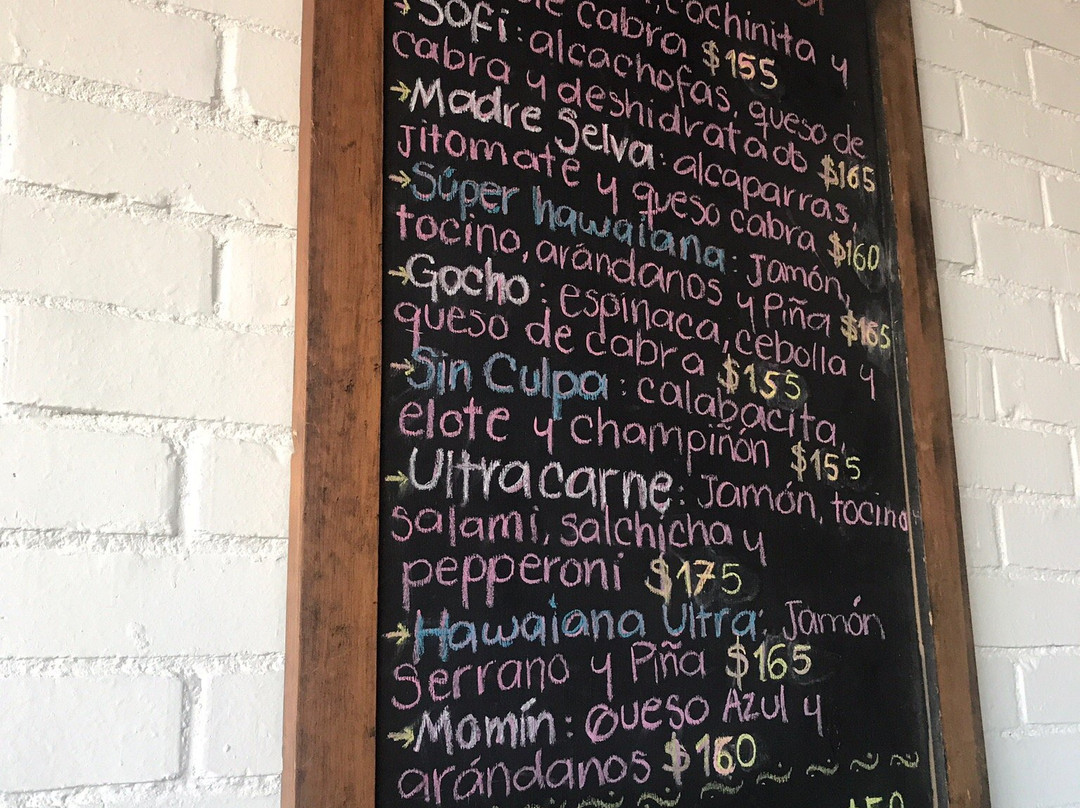 cochinita y
de cabra $155
→Sofi: alcachofas, queso de
cabra y deshidratado $165
→Madre Selva: alcaparras,
jitomate y queso cabra $160
→Súper hawaiana: Jamón,
tocino, arándanos y Piña $165
→Gocho: espinaca, cebolla y
queso de cabra $155
→Sin Culpa: calabacita,
elote y champiñón $155
→Ultracarne: Jamón, tocino
salami, salchicha y
pepperoni $175
→Hawaiana Ultra: Jamón
Serrano y Piña $165
→Momín: Queso Azul y
arándanos $160